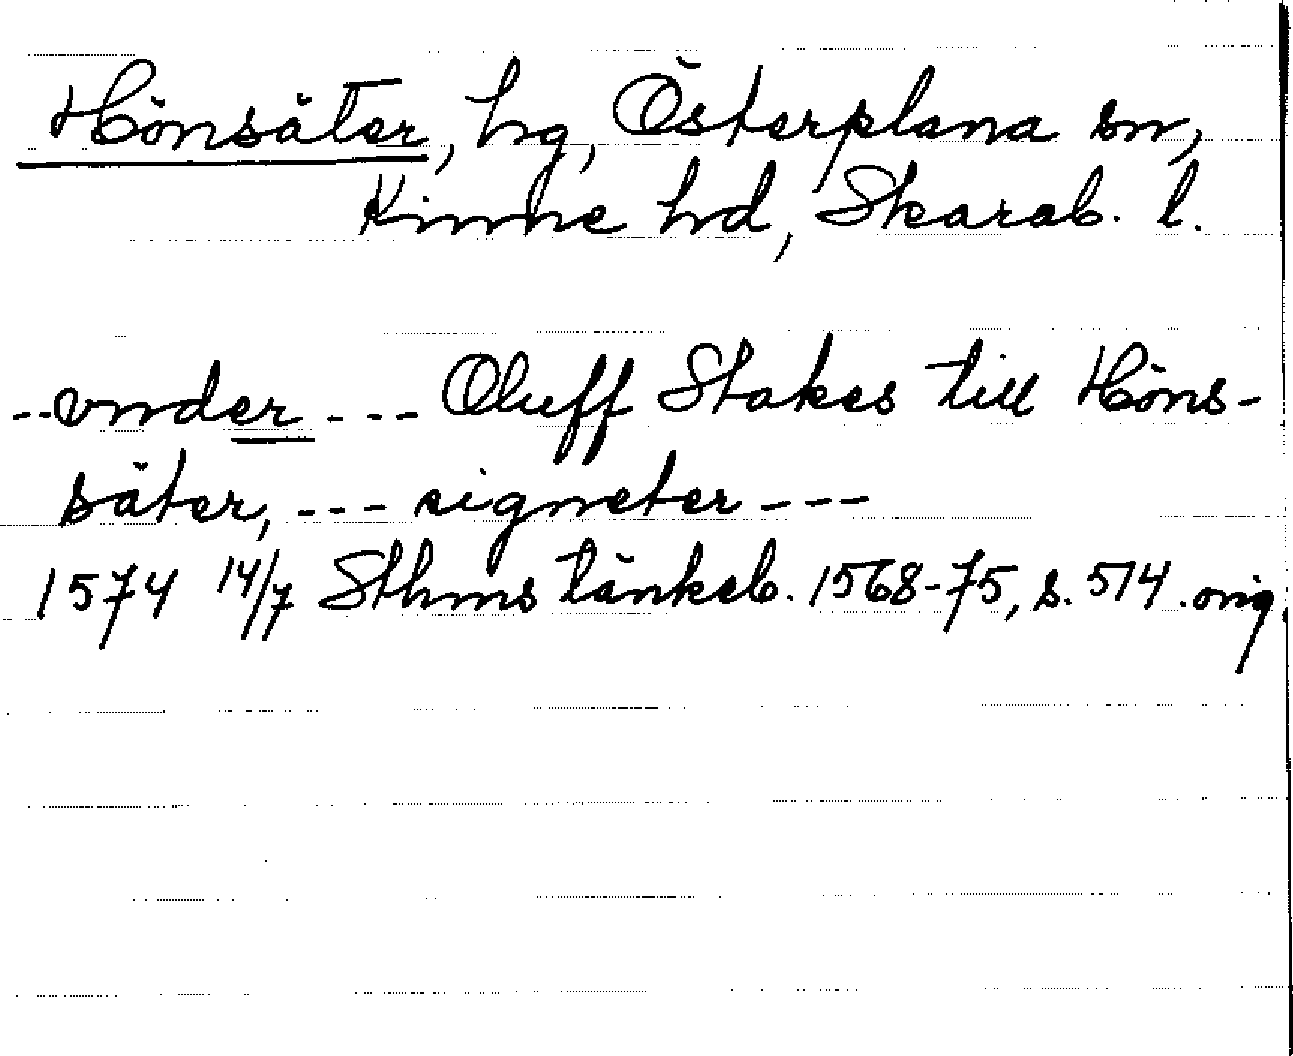 Hönsäter, hg, Österplana sn,
Kinne hd, Skarab. l.
--vnder --- Oluff Stakes till Höns-
säter, --- signeter ---
1574 14/7 Sthms tänkeb. 1568-75, s. 514. orig.